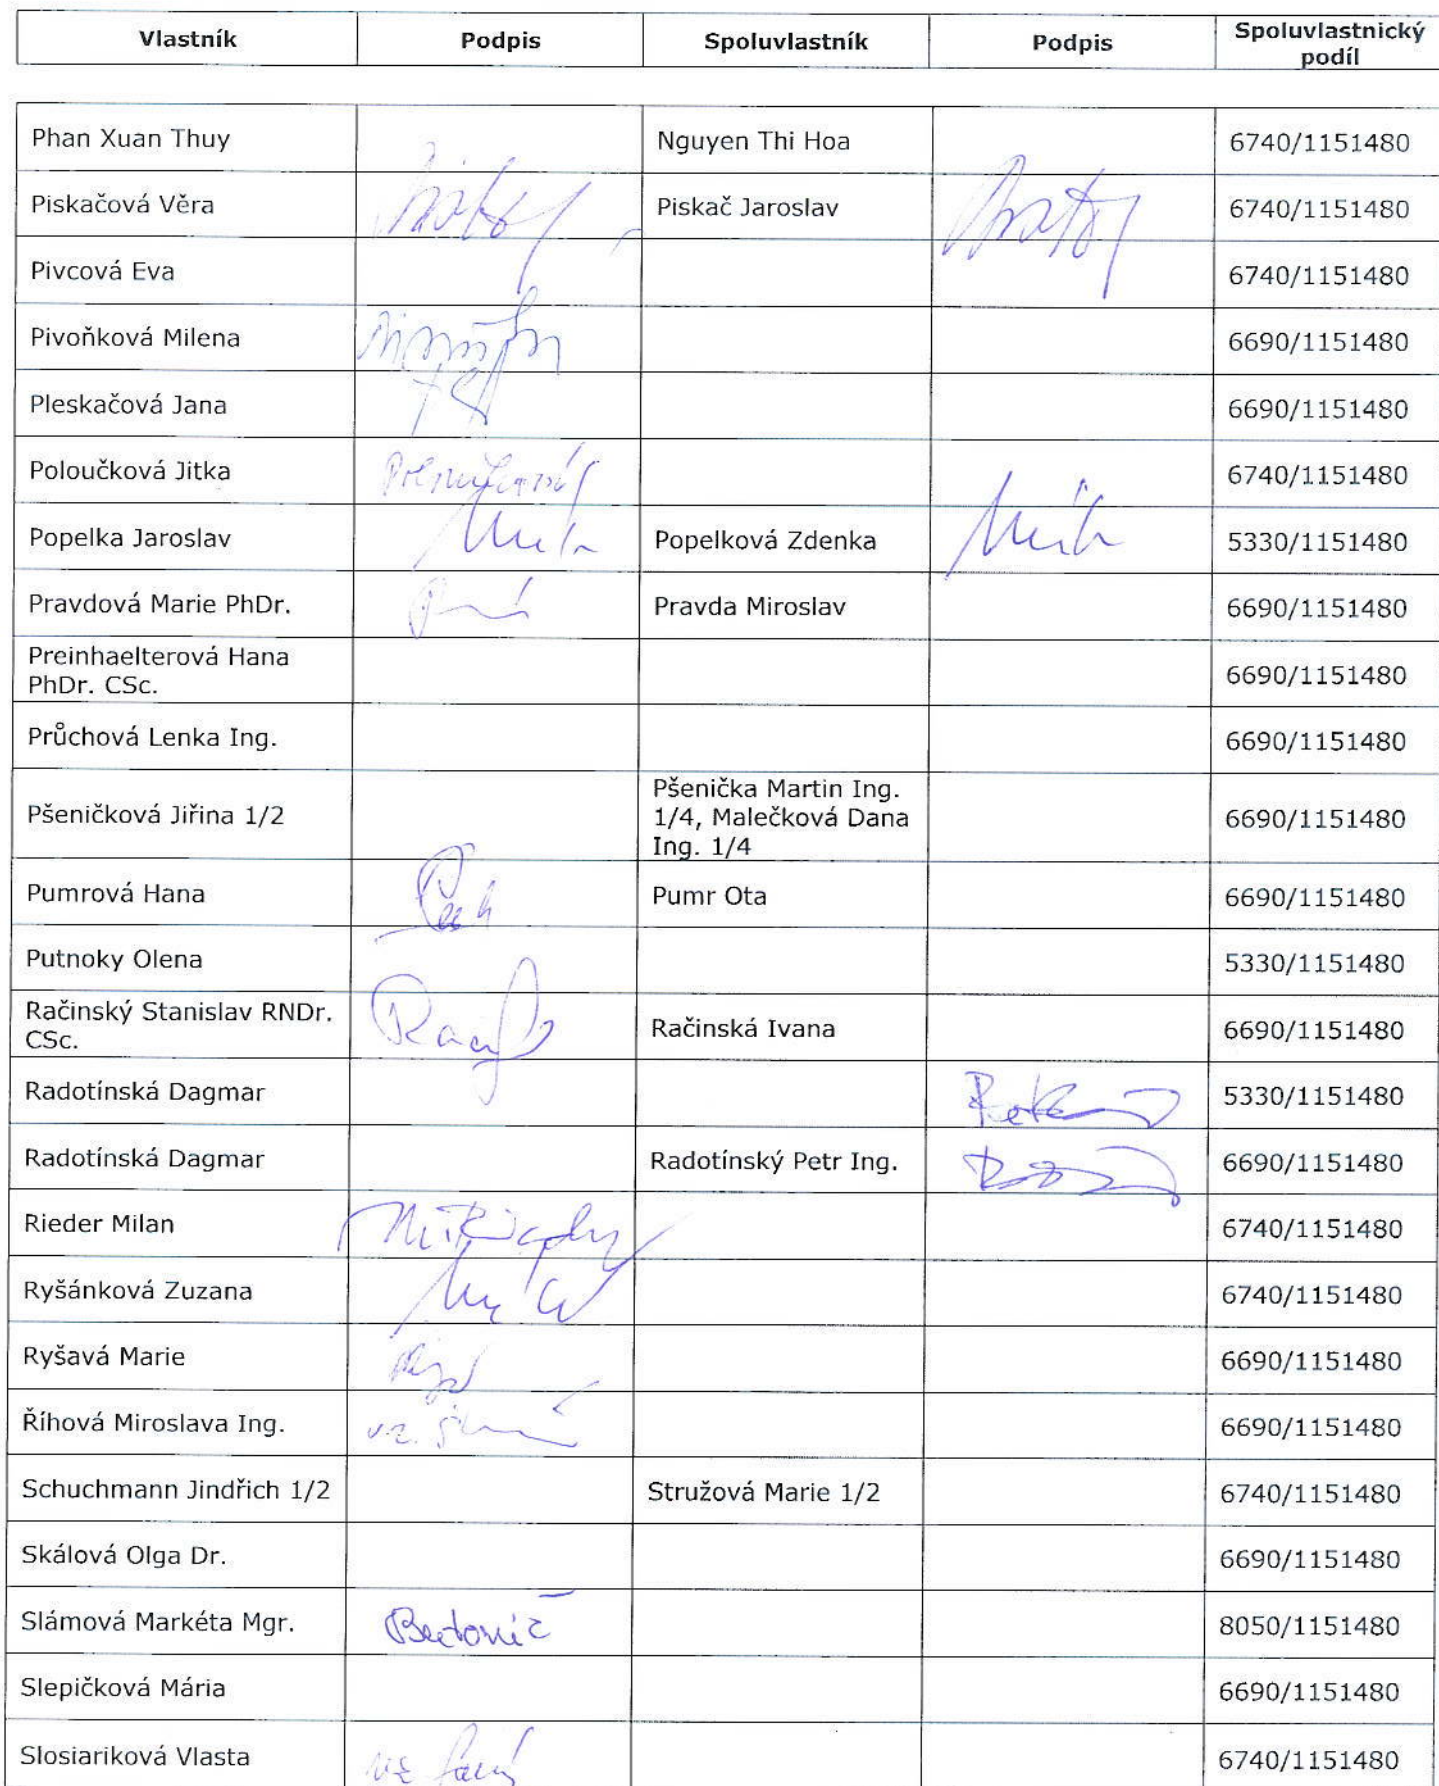 Vlastník Podpis Spoluvlastník Podpis Spoluvlastnický podíl
Phan Xuan Thuy Nguyen Thi Hoa 6740/1151480
Piskačová Věra Piskač Jaroslav 6740/1151480
Pivcová Eva 6740/1151480
Pivoňková Milena 6690/1151480
Pleskačová Jana 6690/1151480
Poloučková Jitka 6740/1151480
Popelka Jaroslav Popelková Zdenka 5330/1151480
Pravdová Marie PhDr. Pravda Miroslav 6690/1151480
Preinhaelterová Hana
PhDr. CSc. 6690/1151480
Průchová Lenka Ing. 6690/1151480
Pšeničková Jiřina 1/2 Pšenička Martin Ing.
1/4, Malečková Dana
Ing. 1/4 6690/1151480
Pumrová Hana Pumr Ota 6690/1151480
Putnoky Olena 5330/1151480
Račinský Stanislav RNDr.
CSc. Račinská Ivana 6690/1151480
Radotínská Dagmar 5330/1151480
Radotínská Dagmar Radotínský Petr Ing. 6690/1151480
Rieder Milan 6740/1151480
Ryšánková Zuzana 6740/1151480
Ryšavá Marie 6690/1151480
Říhová Miroslava Ing. 6690/1151480
Schuchmann Jindřich 1/2 Stružová Marie 1/2 6740/1151480
Skálová Olga Dr. 6690/1151480
Slámová Markéta Mgr. 8050/1151480
Slepičková Mária 6690/1151480
Slosiariková Vlasta 6740/1151480